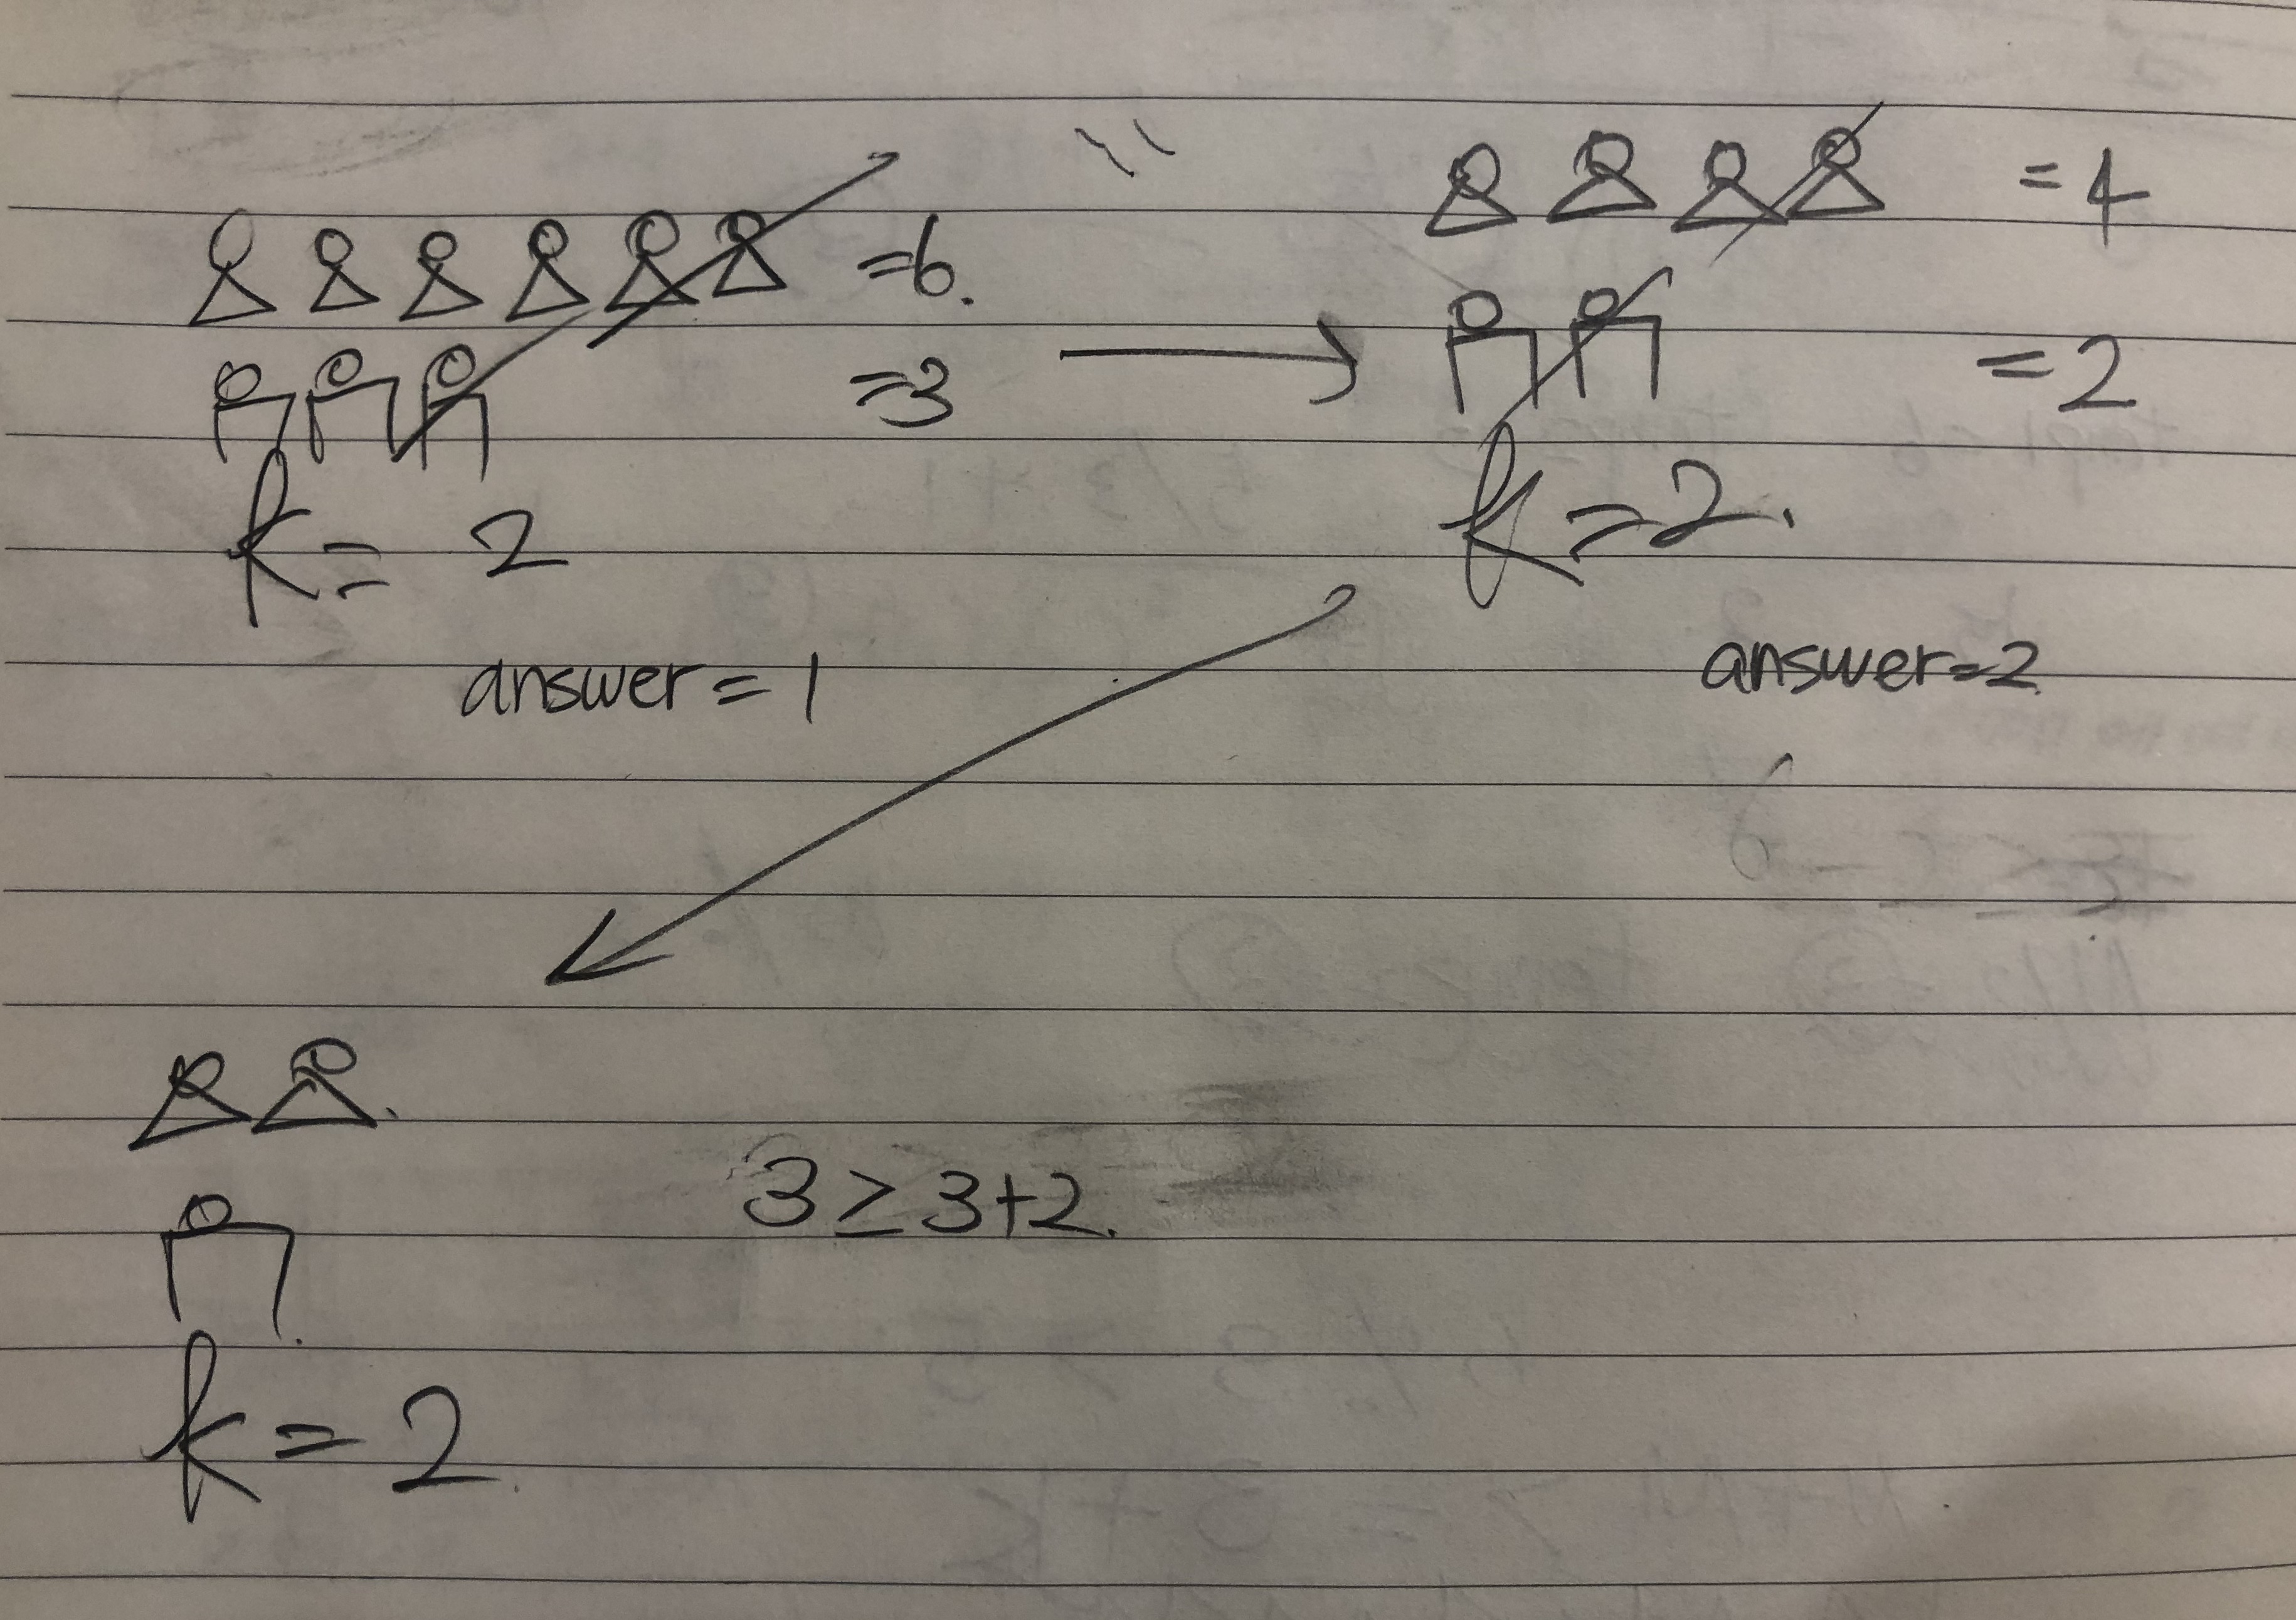 =6.
=3
k= 2
answer=1
=4
=2
k=2.
answer=2
3≥3+2.
k=2